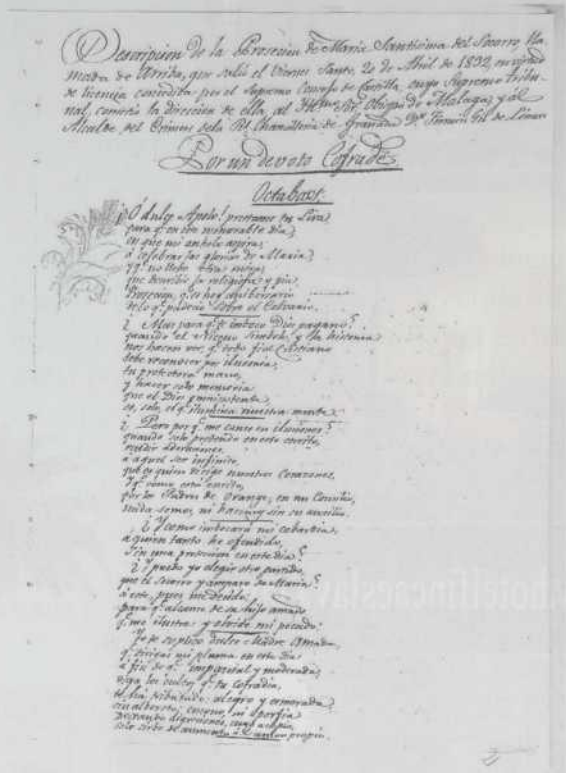 Descripcion de la Prosecion de Maria Santisima del Socorro, lla-
mada de Arriba, que salió el Viernes Santo 20 de Abril de 1832, en virtud
de licencia concedida por el Supremo Consejo de Castilla, cuyo Supremo tribu-
nal, cometió la direccion de ella, al Obispo de Malaga, y al
Alcalde del Crimen de la Rl Chancilleria de Granada Dn Fermin Gil de Linares
Por un devoto Cofrade
Octabas.
¡Ó dulce Apolo! prestame tu Lira
para qe en este memorable dia,
en que mi anhelo aspira,
á celebrar las glorias de Maria,
que describir la religiosa y pia
Prosecion, qe es hoy anibersario
de lo qe padeció sobre el Calvario.
¿Mas para qe te imboco Dios pagano?
quando el Niceno Simbolo, y la historia
nos hacen ver, qe todo fiel Cristiano
debe reconocer por ilusoria,
tu protectora mano,
y hacer solo memoria
que el Dios Omnipotente
es, solo, el qe ilumina nuestra mente.
¿Pero por qe me canso en ilusiones?
quando solo pretendo en este escrito,
rendir adoraciones,
á aquel ser infinito,
que es quien dirige nuestros Corazones,
y qe como está escrito,
por los Padres de Orange, en un Concilio,
nada somos, ni hacemos sin su auxilio.
¿Y como imbocará mi cobardia,
á quien tanto he ofendido,
sin una proteccion en este dia?
¿Y puedo yo elegir otro partido,
que el Socorro y amparo de Maria?
á este, pues me decido
para qe alcance de su hijo amado
qe me ilustre y olvide mi pecado.
Yo te suplico dulce Madre Amada,
qe dirijas mi pluma en este dia
á fin de qe imparcial y moderada,
diga los cultos qe tu cofradia,
te ha tributado: alegre y esmerada
sin alboroto, ni porfia
solo sirve de aumento á amor propio.